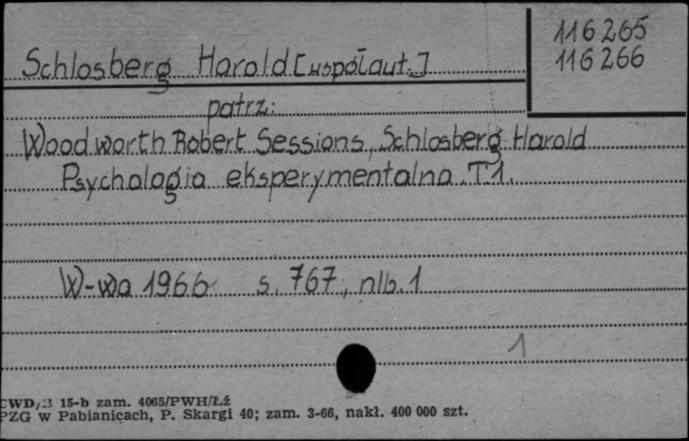 116265
116266
Schlosberg Harold [współaut.]
patrz:
Woodworth Robert Sessions, Schlosberg Harold
Psychologia eksperymentalna. T.1.
W-wa 1966 s. 767, nlb. 1
1
CWD/3 15-b zam. 4065/PWH/Łź
PZG w Pabianicach, P. Skargi 40; zam. 3-66, nakł. 400 000 szt.